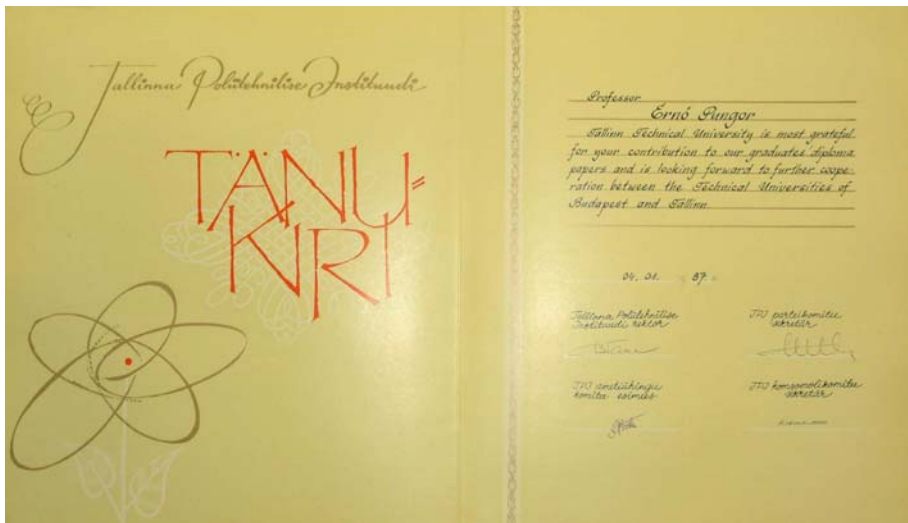 Tallinna Polütehnilise Instituudi
TÄNU=
KIRI
Professor
Ernő Pungor
Tallinn Technical University is most grateful
for your contribution to our graduates diploma
papers and is looking forward to further coope-
ration between the Technical Universities of
Budapest and Tallinn
04. 01. 87.
Tallinna Polütehnilise
Instituudi rektor
TPI parteikomitee
sekretär
TPI ametiühingu
komitee esimees
TPI komsomolikomitee
sekretär